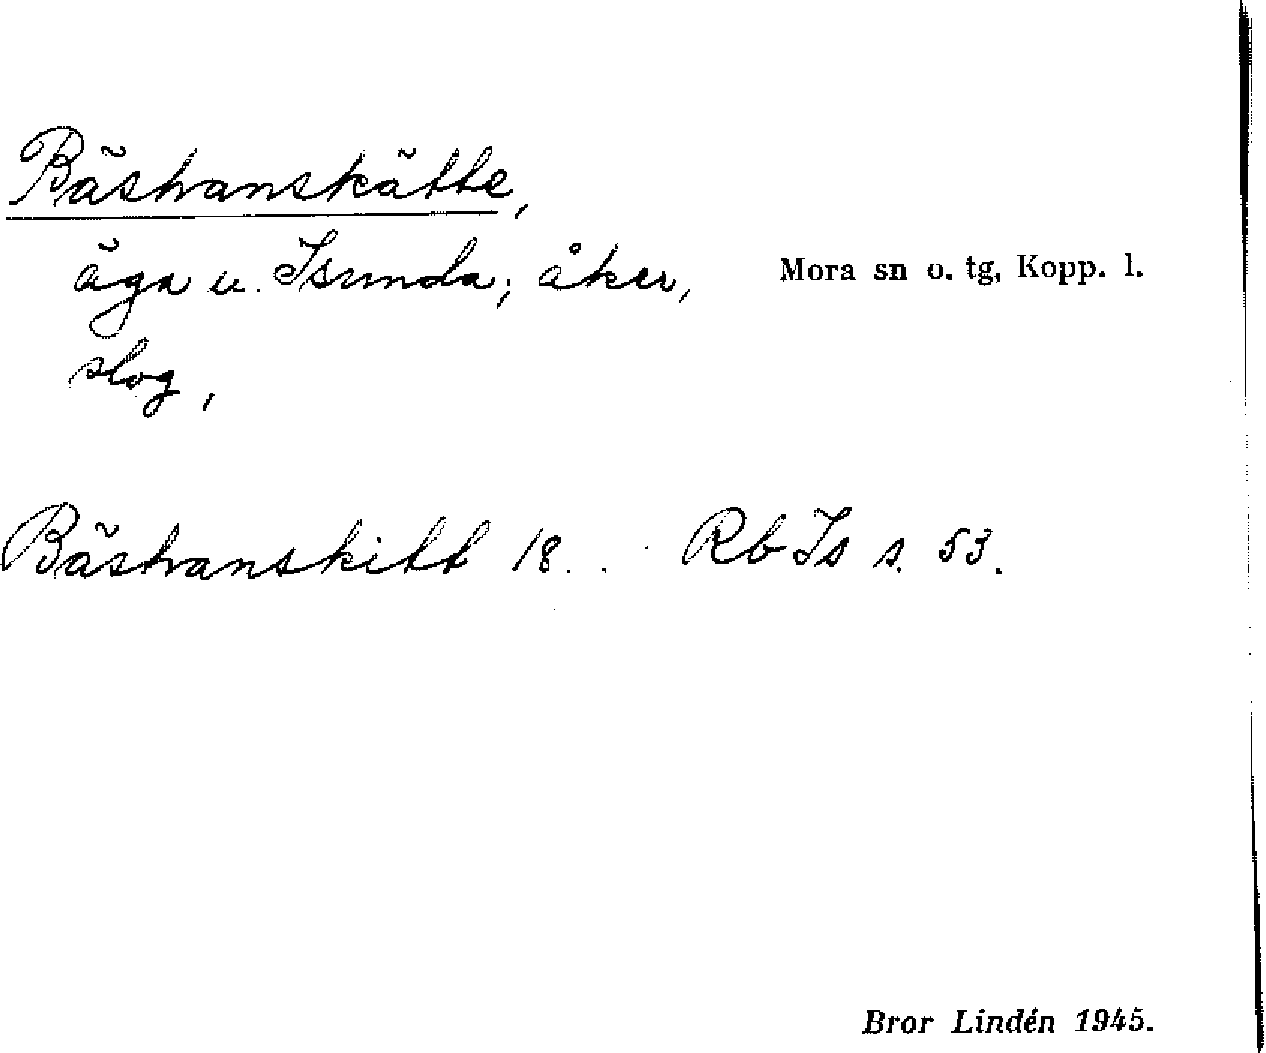 Bäshanskätte,
äga u. Isunda; åker,
Mora sn o. tg, Kopp. l.
slog,
Bäshanskitt 18. . Rb Is s. 53.
Bror Lindén 1945.